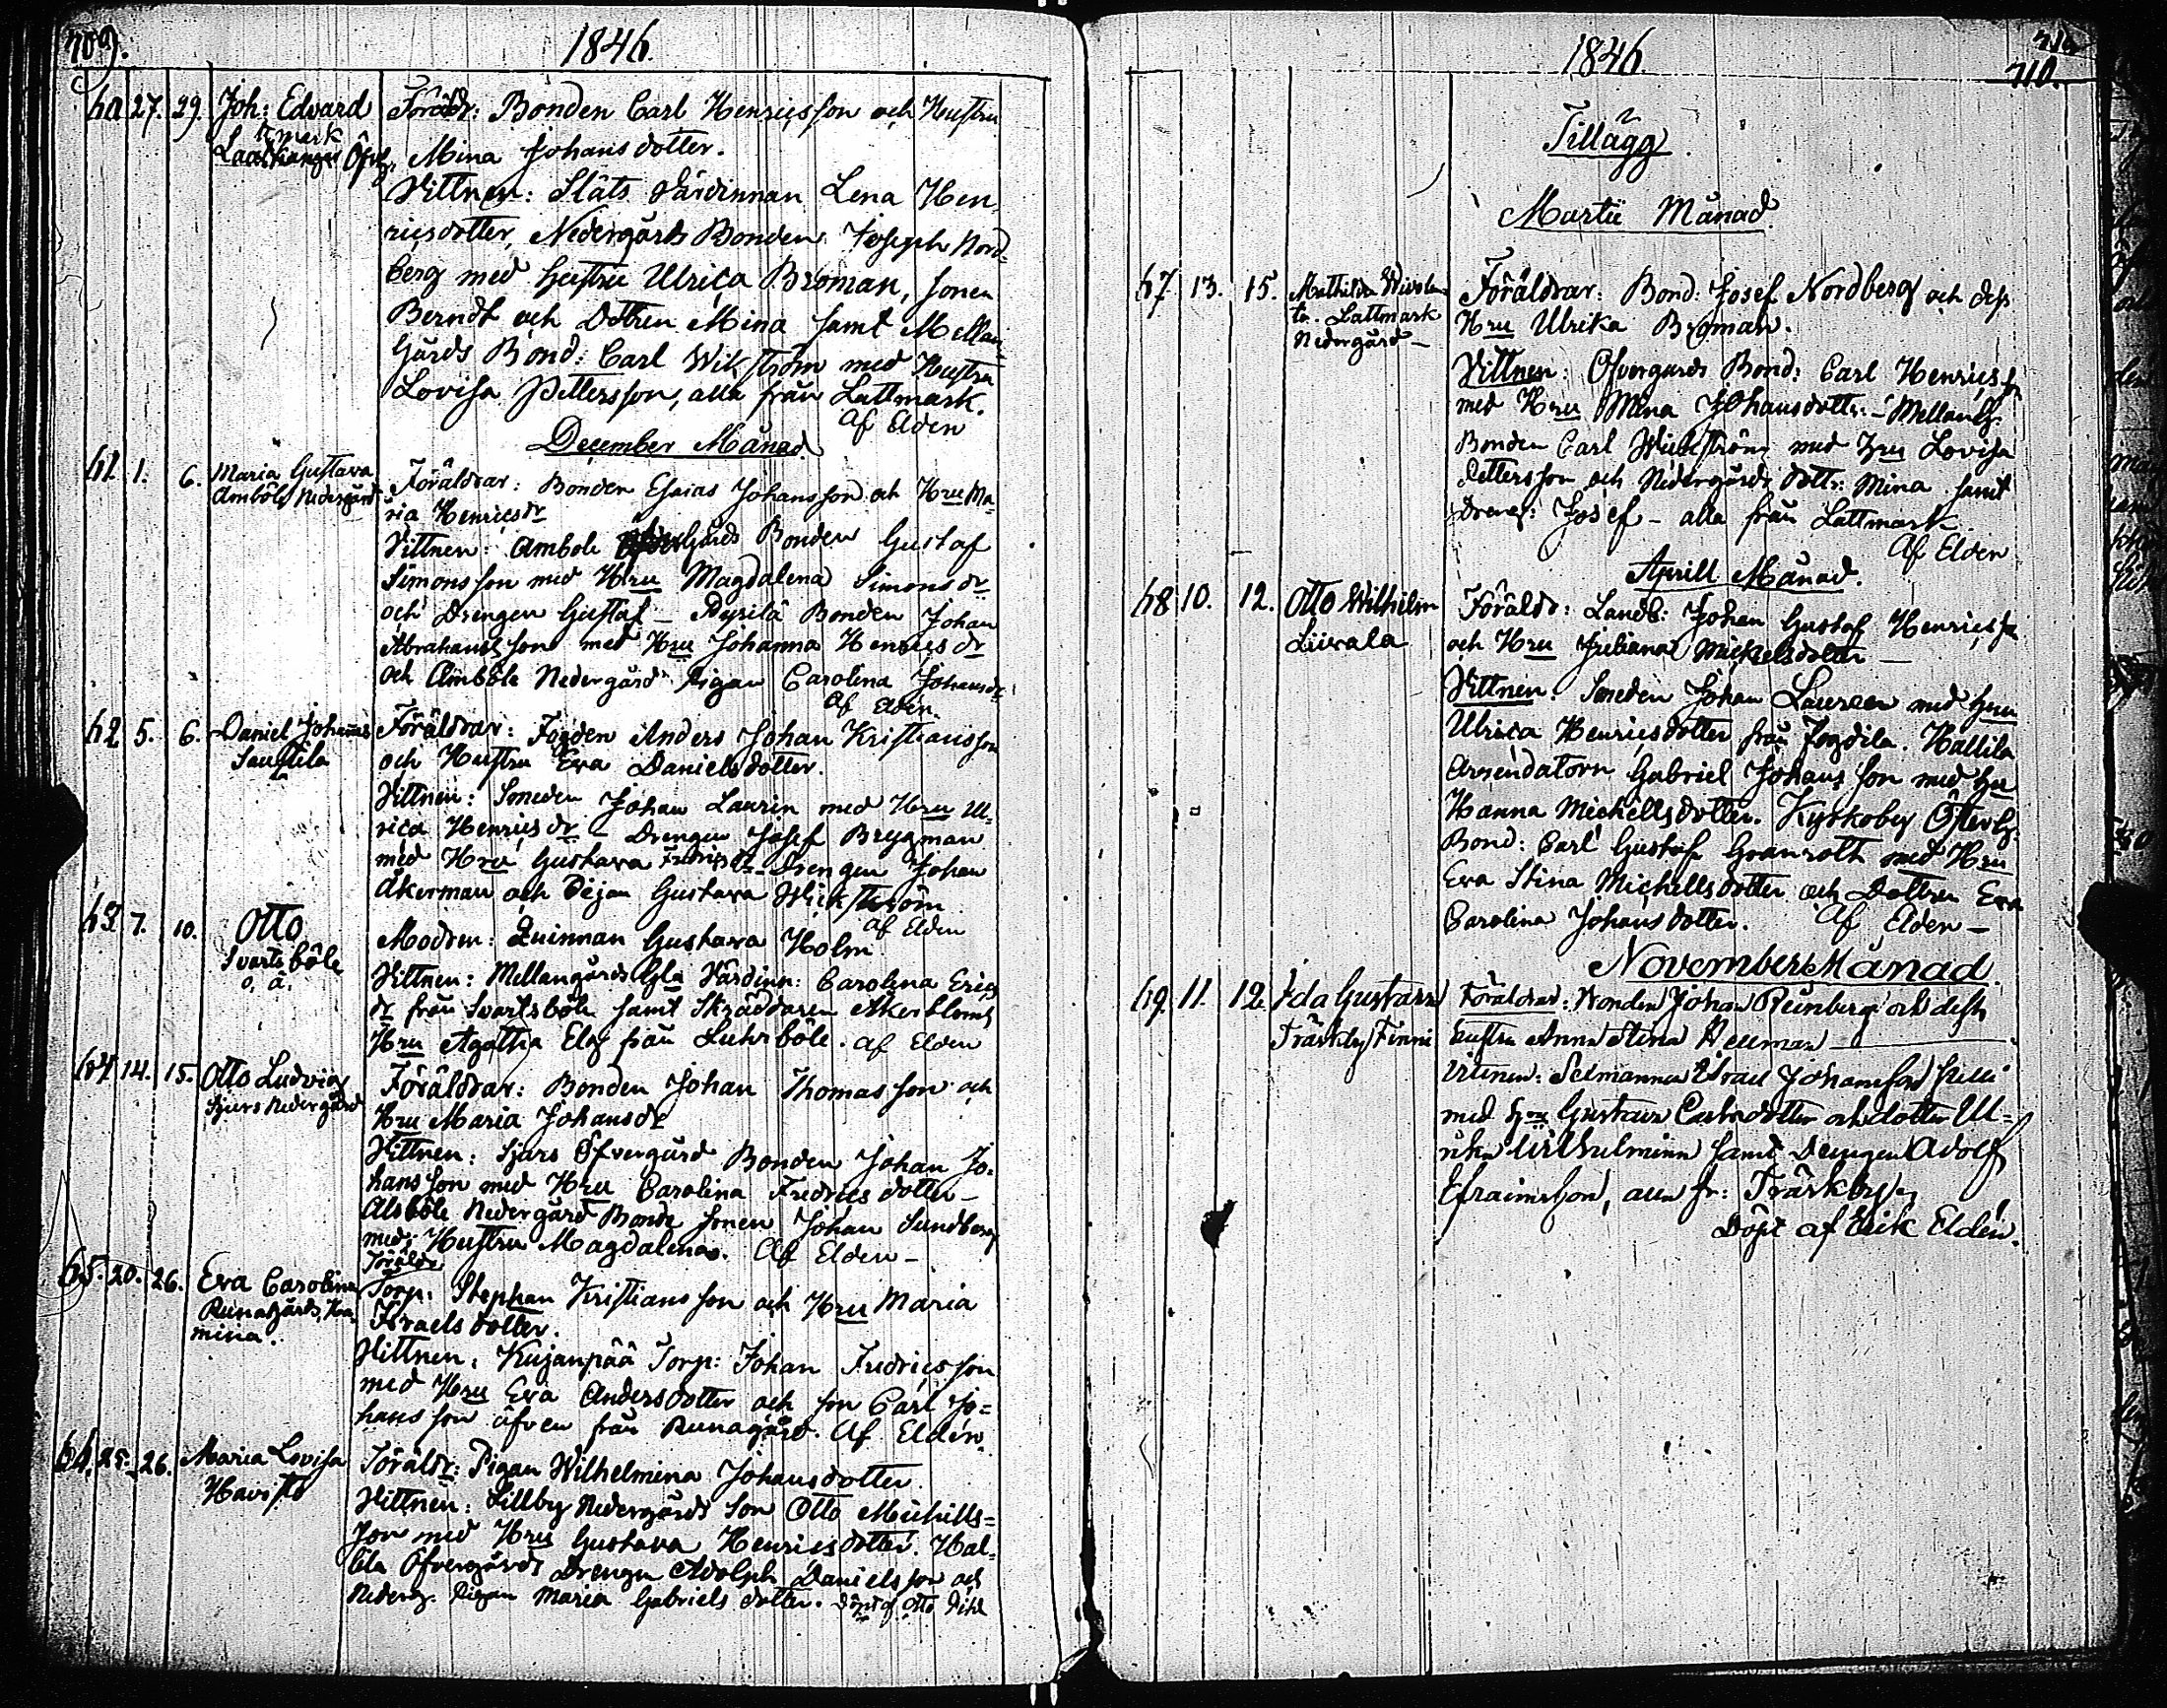 709.
1846.
60 27. 29. Joh: Edvard Föräldr: Bonden Carl Henricsson och Hustru
Mina Johansdotter.
Vittnen: Släts Värdinnan Lena Hen-
ricsdotter, Nedergårds Bonden Joseph Nord-
berg med hustru Ulrica Broman, sonen
Berndt och Dottren Mina samt Mellan-
gårds Bond: Carl Wikström med Hustru
Lovisa Pettersson, alla från Lattmark.
Af Elden
December Månad.
61 1. 6. Maria Gustava Föräldrar: Bonden Esaias Johansson och Hru Ma-
Amböle Nedergård ria Henricsdr
Vittnen: Ambole gårds Bonden Gustaf
Simonsson med Hru Magdalena Simonsdr
och Drengen Gustaf - Bonden Johan
Abrahamsson med Hru Johanna Henricsdr
och Amböle Nedergård Pigan Carolina Johansdr
Af Elden
62 5. 6. Daniel Johannes Föräldrar: Fogden Anders Johan Kristiansson
och Hustru Eva Danielsdotter.
Vittnen: Smeden Johan Laurin med Hru Ul-
rica Henricsdr - Drengen Josef Brygman
med Hru Gustava Fredricsdr - Drengen Johan
Åkerman och Pigan Gustava Wickström
af Elden
63 7. 10. Otto Modren: Quinnan Gustava Holm
Svartsböle
o. ä.
Vittnen: Mellangårds Gla Värdinn: Carolina Erics
dr från Svartsböle samt Skräddaren Åkerbloms
Hru Agatha Elg från Luhrböle. af Elden
64 14. 15. Otto Ludvig Föräldrar: Bonden Johan Thomasson och
Sjurs Nedergård Hru Maria Johansdr
Vittnen: Sjurs Öfvergård Bonden Johan Jo-
hansson med Hru Carolina Fredricsdotter -
Alsböle Nedergård Bonde sonen Johan Sundberg
med Hustru Magdalena. Af Elden -
Föräldr
65. 20. 26. Eva Carolina Torp: Stephan Kristiansson och Hru Maria
Runagårds, Ka- Israelsdotter.
mina.
Vittnen: Kujanpää Torp: Johan Fredricsson
med Hru Eva Andersdotter och son Carl Jo-
hansson äfven från Runagård. Af Elden
66. 25. 26. Maria Lovisa Föräldr: Pigan Wilhelmina Johansdotter.
Havisto
Vittnen: Lillby Nedergårds Son Otto Michills-
son med Hru Gustava Henricsdotter. Hal-
lila Öfvergårds Drengen Adolph Danielsson och
Nederg. Pigan Maria Gabrielsdotter. Döpt af Otto
1846.
710.
Tillägg
Martii Månad.
67 13. 15. Mathilda Föräldrar: Bond: Josef Nordberg och dess
Lattmark Hru Ulrika Broman.
Nedergård -
Vittnen: Öfvergårds Bond: Carl Henricss:
med Hru Mina Johansdotter. - Mellang:
Bonden Carl Wickström med Hru Lovisa
Pettersson och Nedergårds Dottr: Mina samt
Dreng: Josef - alla från Lattmark.
Af Elden
Aprill Månad.
68 10. 12. Otto Wilhelm Föräldr: Landb: Johan Gustaf Henricsson
Liivala och Hru Juliana Mickelsdotter -
Vittnen: Smeden Johan Laureen med Hru
Ulrica Henricsdotter från Fogdila. Hallila
Arrendatorn Gabriel Johansson med Hu
Hanna Michellsdotter. Kyrkoby Österg:
Bond: Carl Gustaf Granroth med Hru
Eva Stina Michellsdotter och Dottren Eva
Carolina Johansdotter. Af Elden -
November Månad.
69. 11. 12. Ida Gustava Föräldrar: Bonden Johan Renberg och dess
Träskby Finni hustru Anna Stina Heuman
Vittnen: Israel Johansson
med Hru Gustava och dotter Ul-
rika Wilhelmina samt Drengen Adolf
Efraimsson, alla fr: Träskby,
Döpt af Erik Elden.